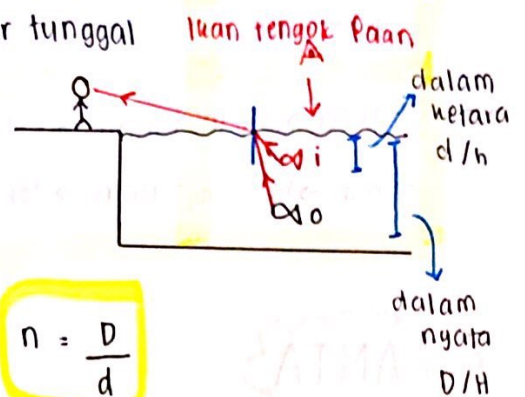 r tunggal
Ikan tengok Paan
dalam
ketara
d/h
i
o
dalam
nyata
D/H
n = D/d